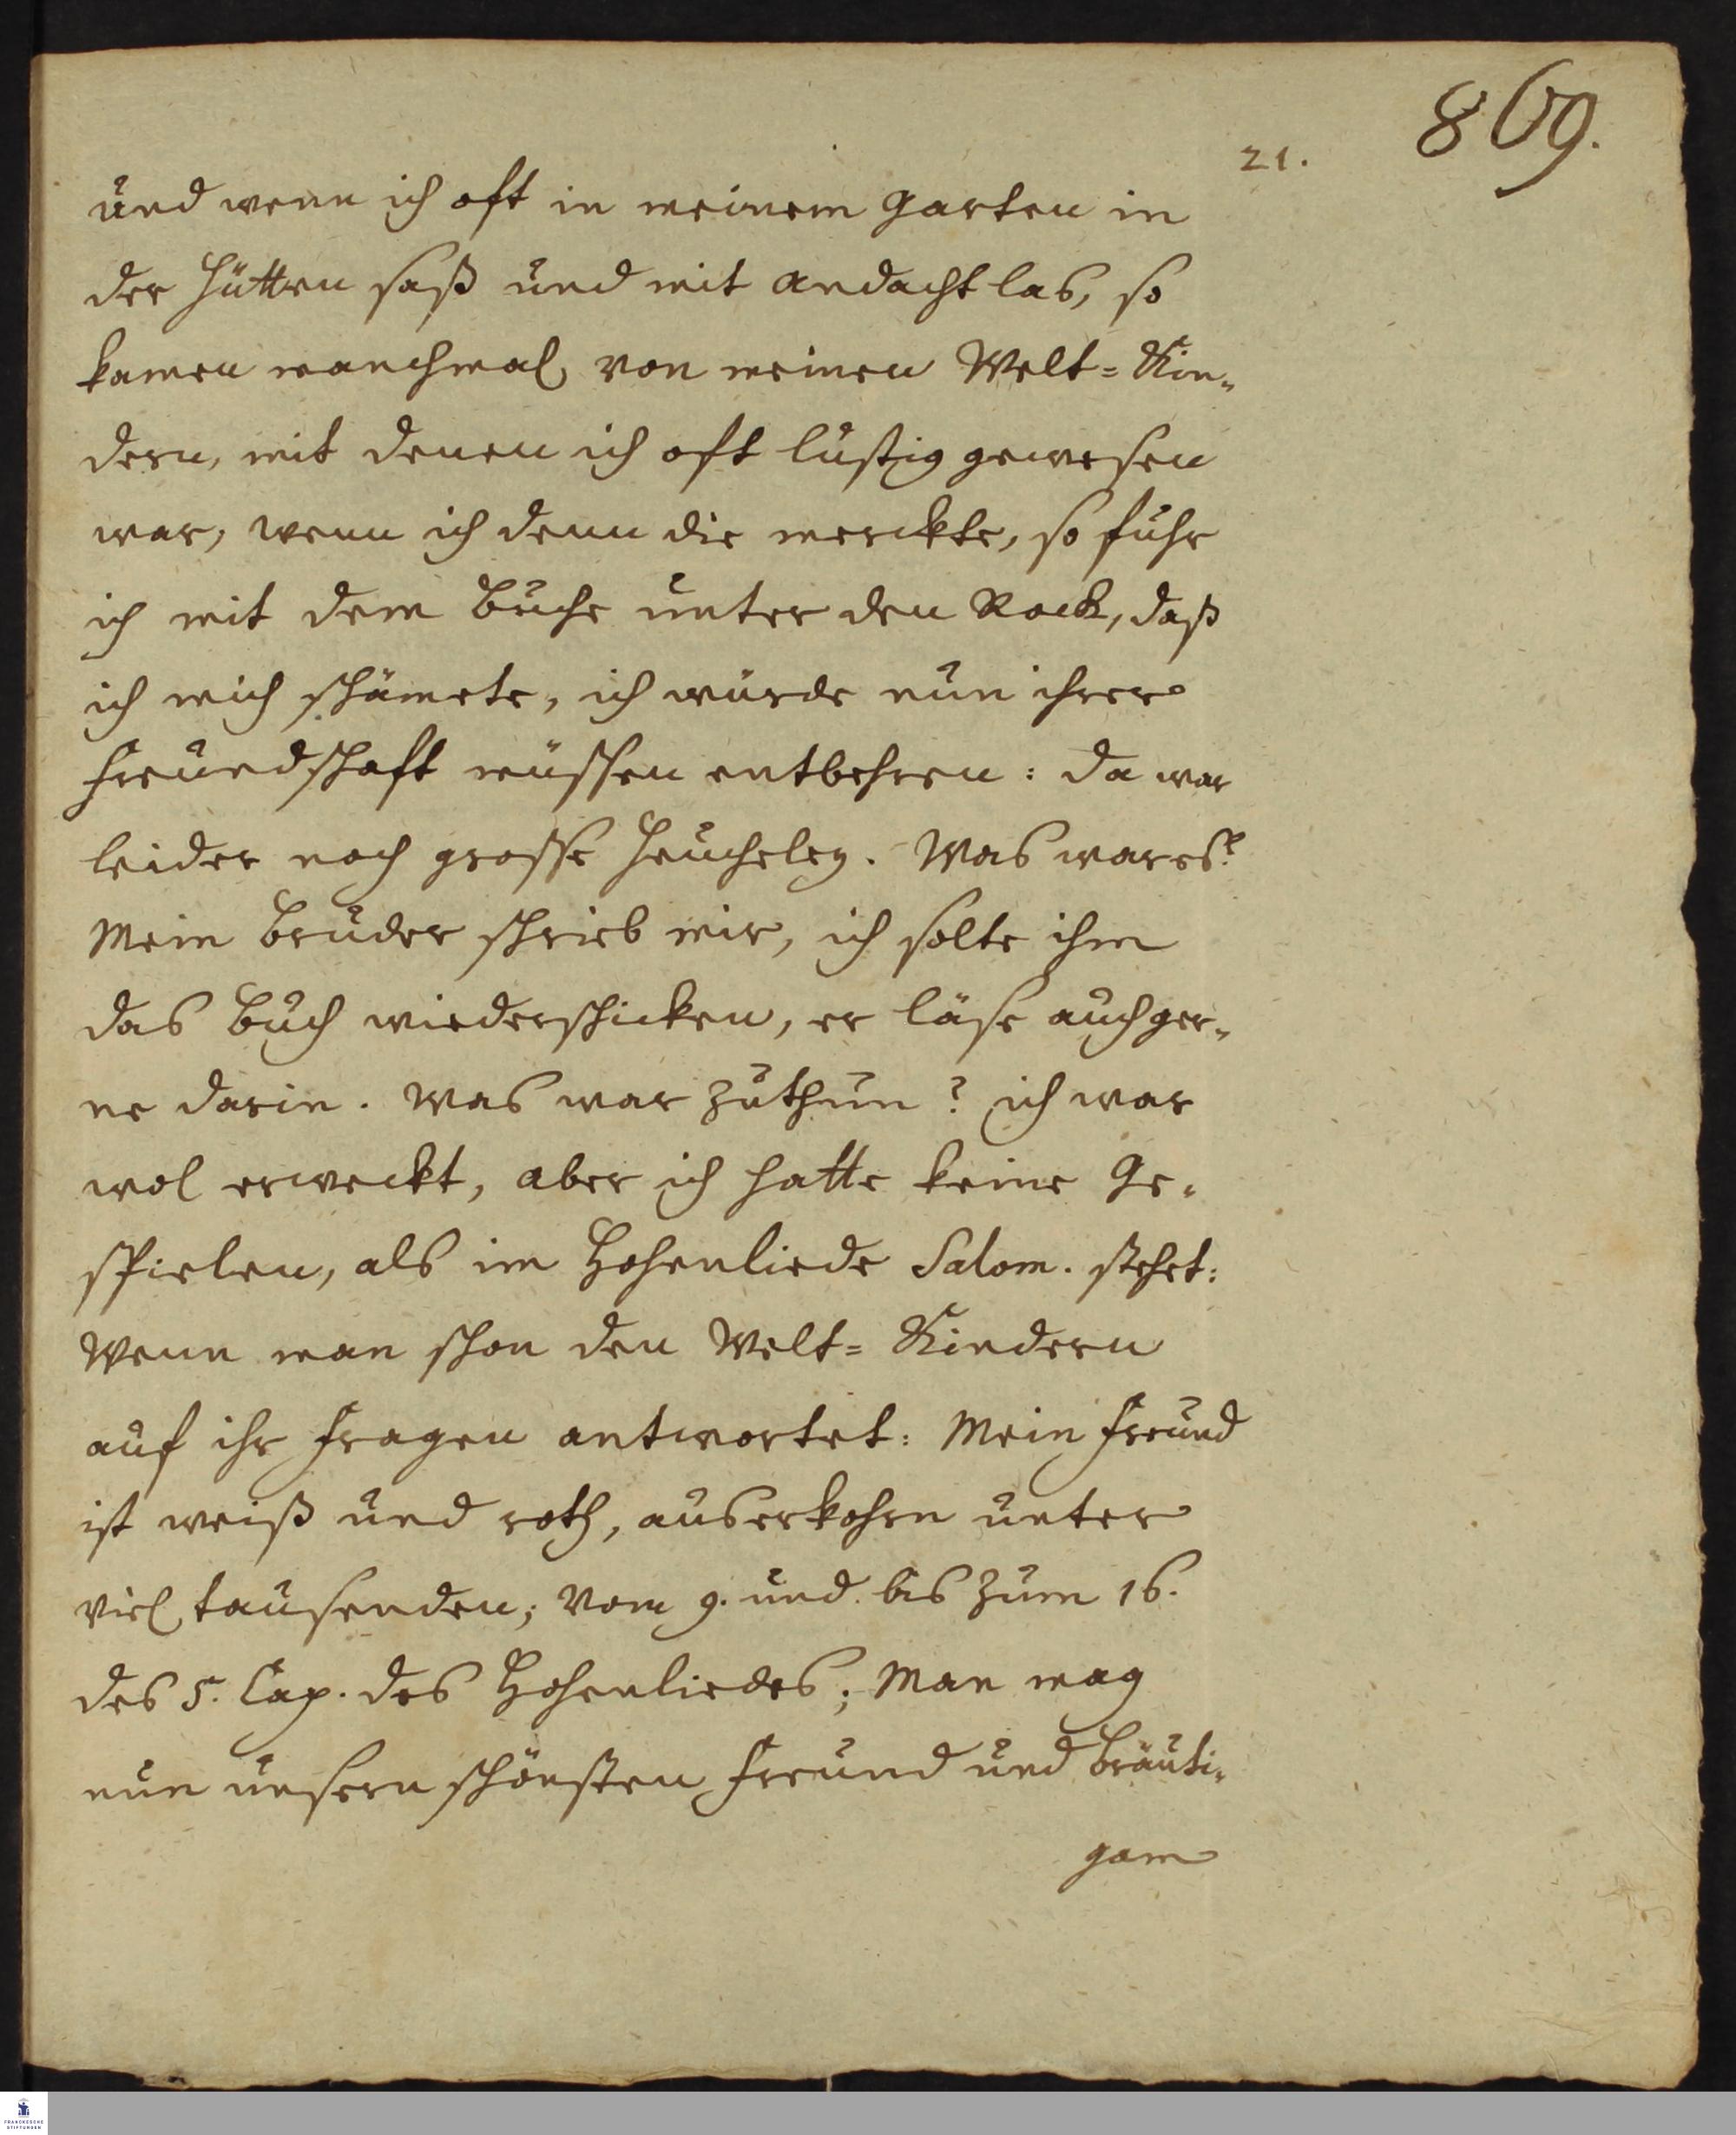 869.
21.
und wenn ich oft in meinem Garten in
der Hütten saß und mit Andacht las, so
kamen manchmal von meinen Welt=Kin=
dern, mit denen ich oft lustig gewesen
war, wenn ich denn die merckte, so fuhr
ich mit dem Buche unter den Rock, daß
ich mich schämete, ich würde nun ihrer
Freundschafft müssen entbehren: da war
leider noch grosse Heucheley. Was war es?
Mein Bruder schrieb mir, ich solte ihm
das Buch wiederschicken, er läse auch ger=
ne darin. Was war zuthun? ich war
wol erweckt, aber ich hatte keine Ge=
spielen, als im Hohenliede Salom. stehet:
Wenn man schon den Welt=Kindern
auf ihr Fragen antwortet: Mein Freund
ist weiß und roth, auserkohrn unter
viel tausenden; vom 9. und bis zum 16.
des 5. Cap. des Hohenliedes; Man mag
nun unsern schönsten Freund und Bräuti=
gam
FRANCKESCHE
STIFTUNGEN